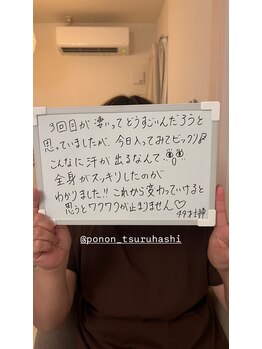 3回目が凄いってどうすごいんだろうと
思っていましたが、今日入ってみてビックリ
こんなに汗が出るなんて
全身がスッキリしたのが
わかりました!! これから変わっていけると
思うとワクワクが止まりません♡
49才主婦
@ponon_tsuruhashi